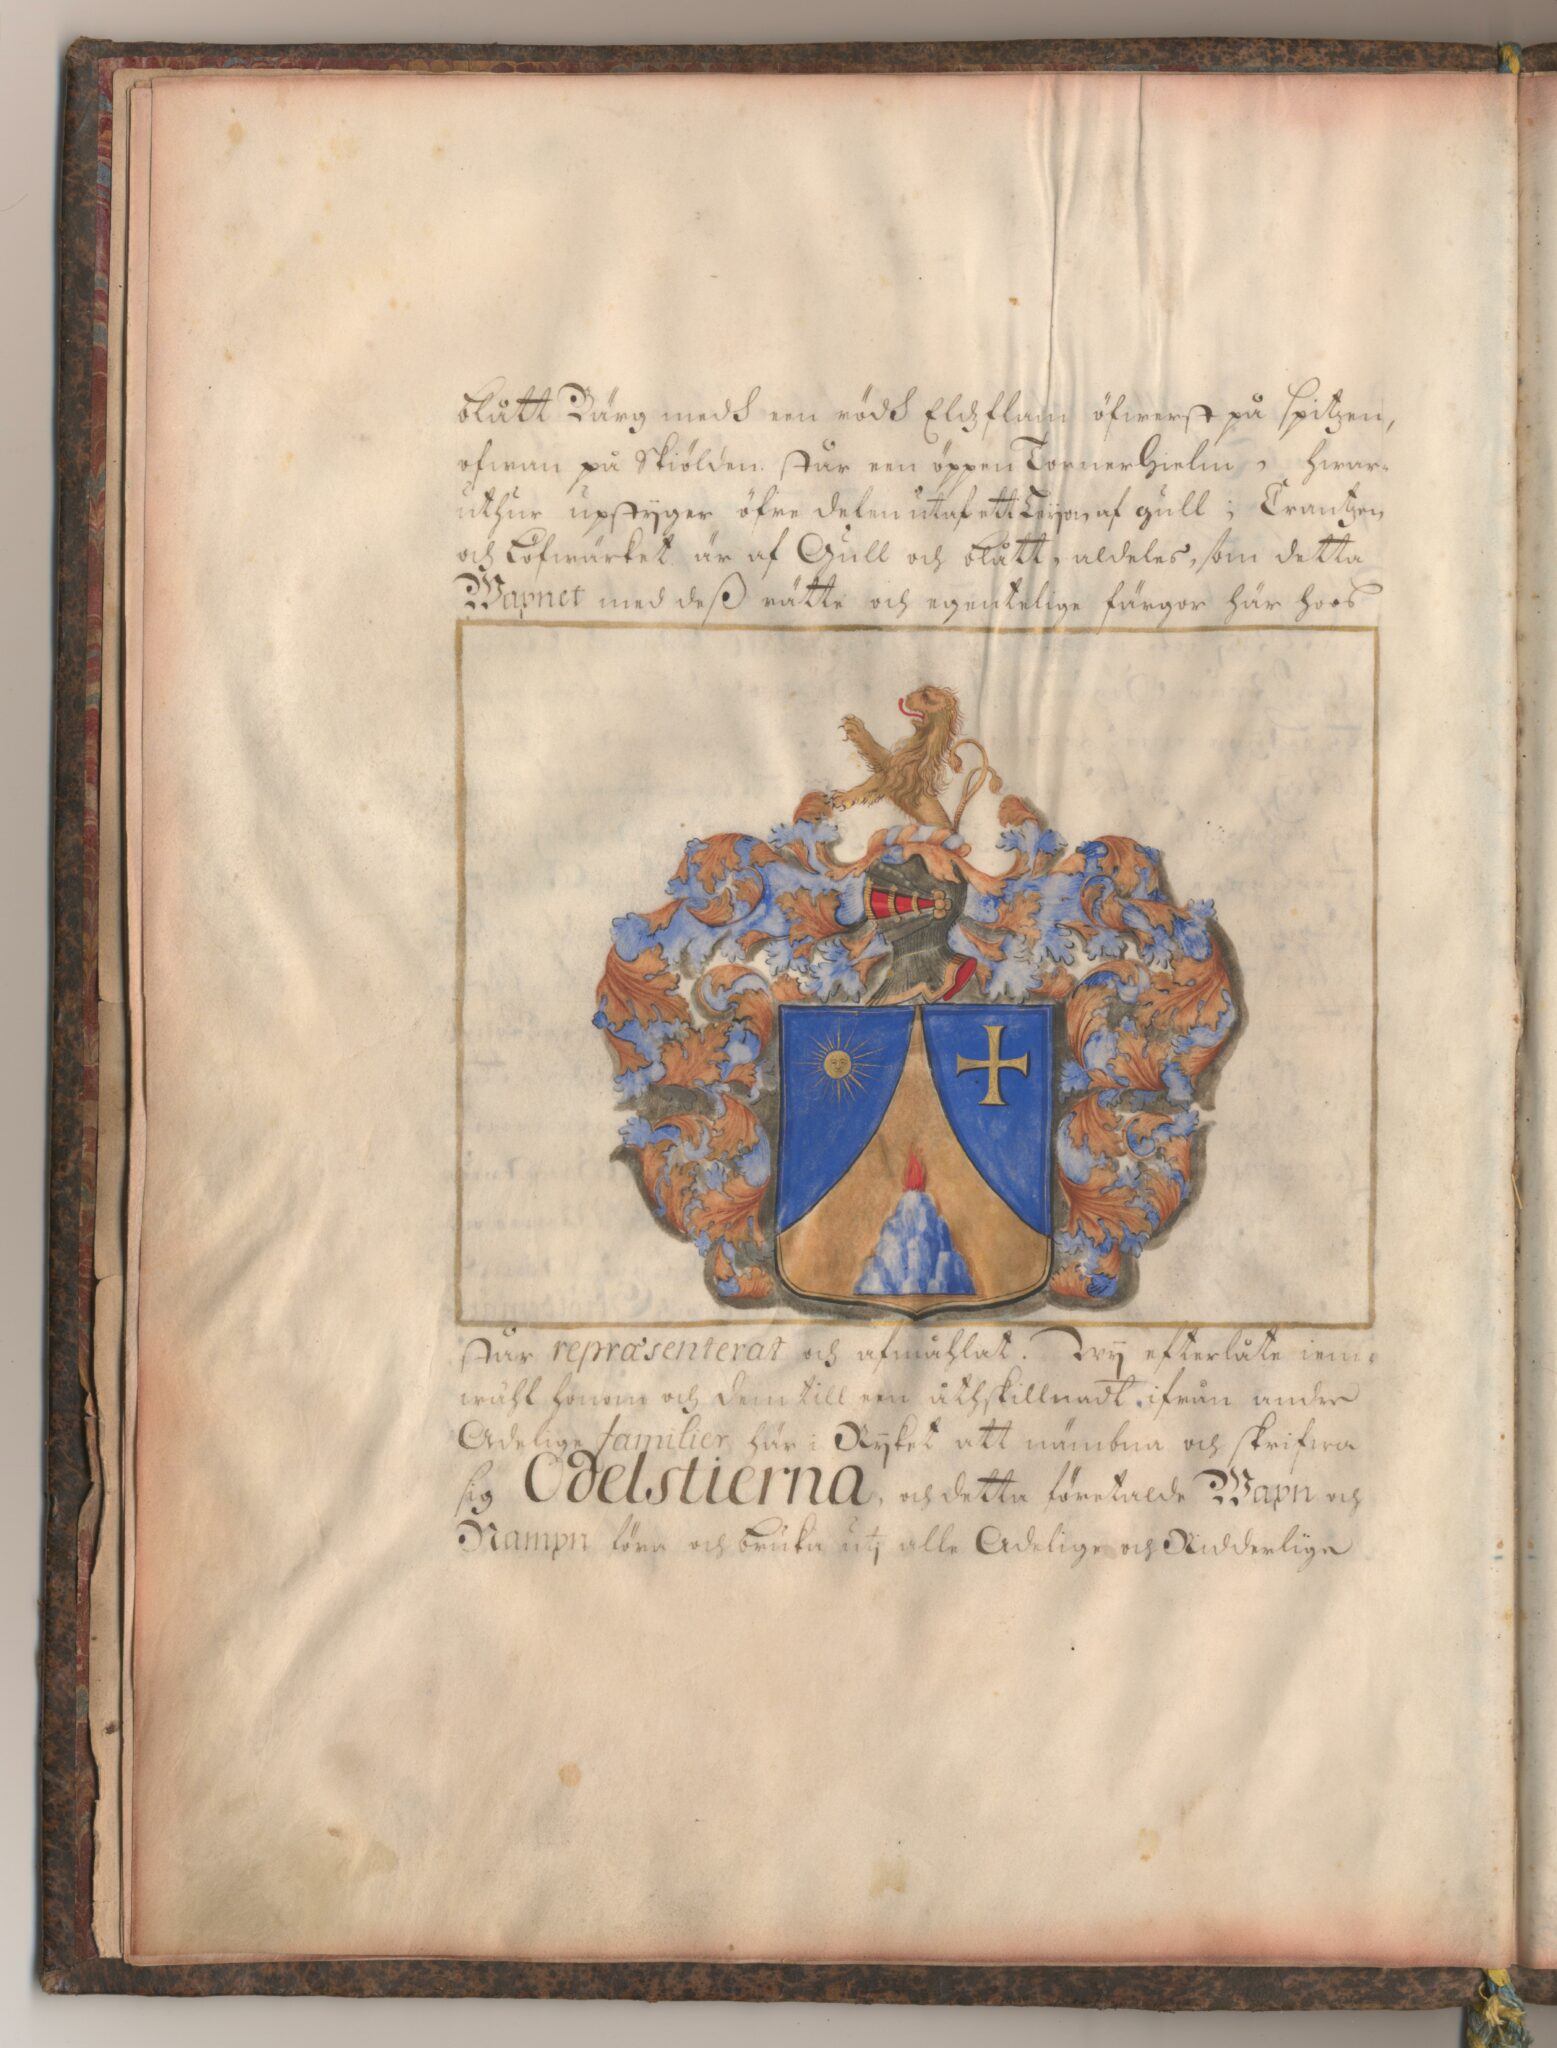 blått Bärg medh een rödh Eldzflam öfwerst på spitzen,
ofwan på Skiölden står een öppen TornerHielm, hwar-
uthur upstyger öfre delen utaf ett Leyon af gull; Crantzen
och Löfwärket är af Gull och blått, aldeles, som detta
Wapnet med deß rätte och egentelige färgor här hoos
står repræsenterat och afmåhlat. Wij efterlåte iem-
wähl honom och dem till een åthskillnadt ifrån andre
Adelige familier här i Ryket att nämbna och skrifwa
sig Odelstierna, och detta företalde Wapn och
Nampn föra och bruka utj alle Adelige och Ridderlige